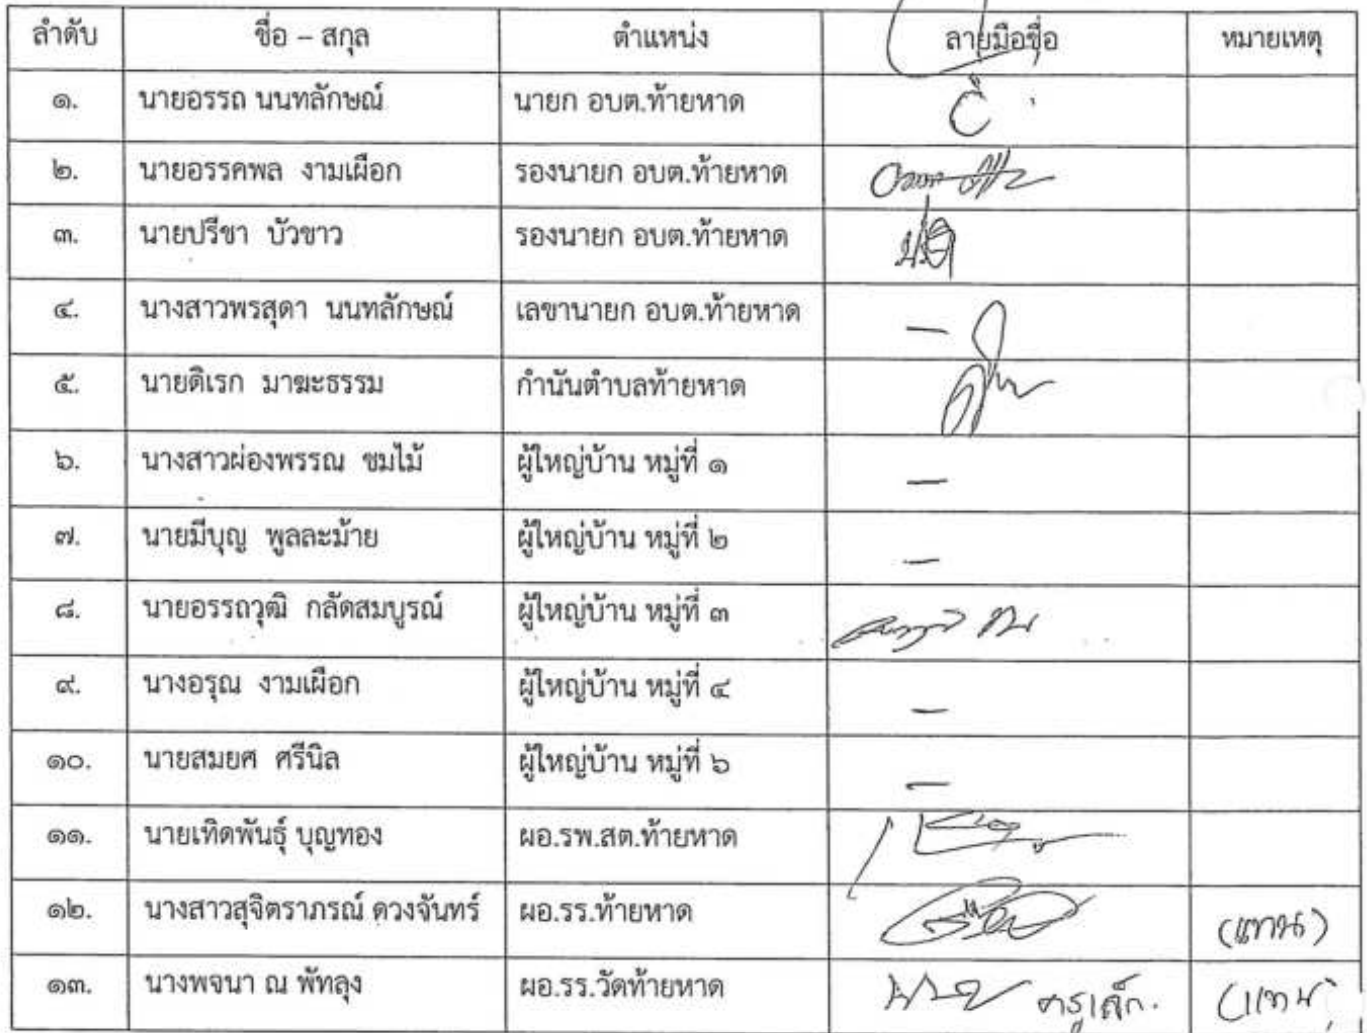 ลำดับ ชื่อ – สกุล ตำแหน่ง ลายมือชื่อ หมายเหตุ
๑. นายอรรถ นนทลักษณ์ นายก อบต.ท้ายหาด
๒. นายอรรคพล งามเผือก รองนายก อบต.ท้ายหาด
๓. นายปรีชา บัวขาว รองนายก อบต.ท้ายหาด
๔. นางสาวพรสุดา นนทลักษณ์ เลขานายก อบต.ท้ายหาด –
๕. นายดิเรก มาฆะธรรม กำนันตำบลท้ายหาด
๖. นางสาวผ่องพรรณ ชมไม้ ผู้ใหญ่บ้าน หมู่ที่ ๑ –
๗. นายมีบุญ พูลละม้าย ผู้ใหญ่บ้าน หมู่ที่ ๒ –
๘. นายอรรถวุฒิ กลัดสมบูรณ์ ผู้ใหญ่บ้าน หมู่ที่ ๓
๙. นางอรุณ งามเผือก ผู้ใหญ่บ้าน หมู่ที่ ๔ –
๑๐. นายสมยศ ศรีนิล ผู้ใหญ่บ้าน หมู่ที่ ๖ –
๑๑. นายเทิดพันธุ์ บุญทอง ผอ.รพ.สต.ท้ายหาด
๑๒. นางสาวสุจิตราภรณ์ ดวงจันทร์ ผอ.รร.ท้ายหาด (แทน)
๑๓. นางพจนา ณ พัทลุง ผอ.รร.วัดท้ายหาด ครูเล็ก. (แทน)